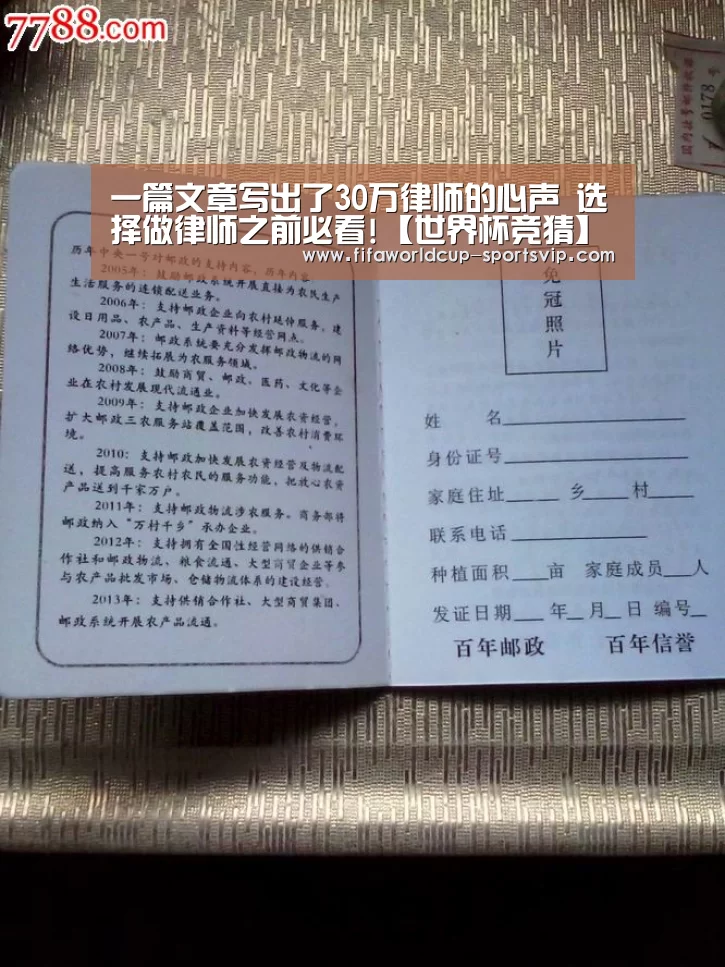 7788.com
国内挂号邮件收据
0178 号
一篇文章写出了30万律师的心声 选
择做律师之前必看!【世界杯竞猜】
www.fifaworldcup-sportsvip.com
历年中央一号对邮政的支持内容，历年内容：
2005年：鼓励邮政系统开展直接为农民生产
生活服务的连锁配送业务。
2006年：支持邮政企业向农村延伸服务，建
设日用品、农产品、生产资料等经营网点。
2007年：邮政系统要充分发挥邮政物流的网
络优势，继续拓展为农服务领域。
2008年：鼓励商贸、邮政、医药、文化等企
业在农村发展现代流通业。
2009年：支持邮政企业加快发展农资经营，
扩大邮政三农服务站覆盖范围，改善农村消费环
境。
2010：支持邮政加快发展农资经营及物流配
送，提高服务农村农民的服务功能，把放心农资
产品送到千家万户。
2011年：支持邮政物流涉农服务。商务部将
邮政纳入“万村千乡”承办企业。
2012年：支持拥有全国性经营网络的供销合
作社和邮政物流、粮食流通、大型商贸企业等参
与农产品批发市场、仓储物流体系的建设经营。
2013年：支持供销合作社、大型商贸集团、
邮政系统开展农产品流通。
免
冠
照
片
姓 名
身份证号
家庭住址 乡 村
联系电话
种植面积 亩 家庭成员 人
发证日期 年 月 日 编号
百年邮政 百年信誉